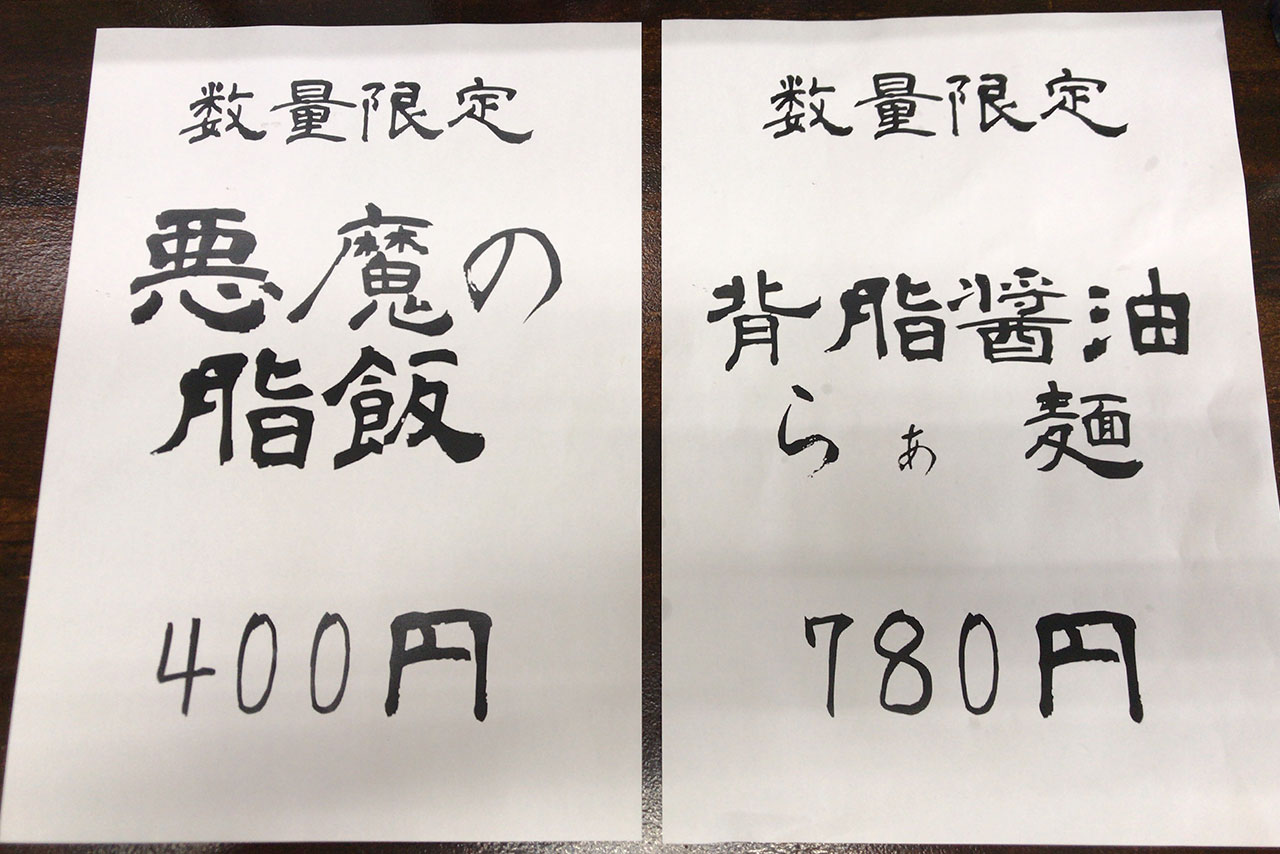 数量限定
悪魔の
脂飯
400円
数量限定
背脂醤油
らぁ麺
780円